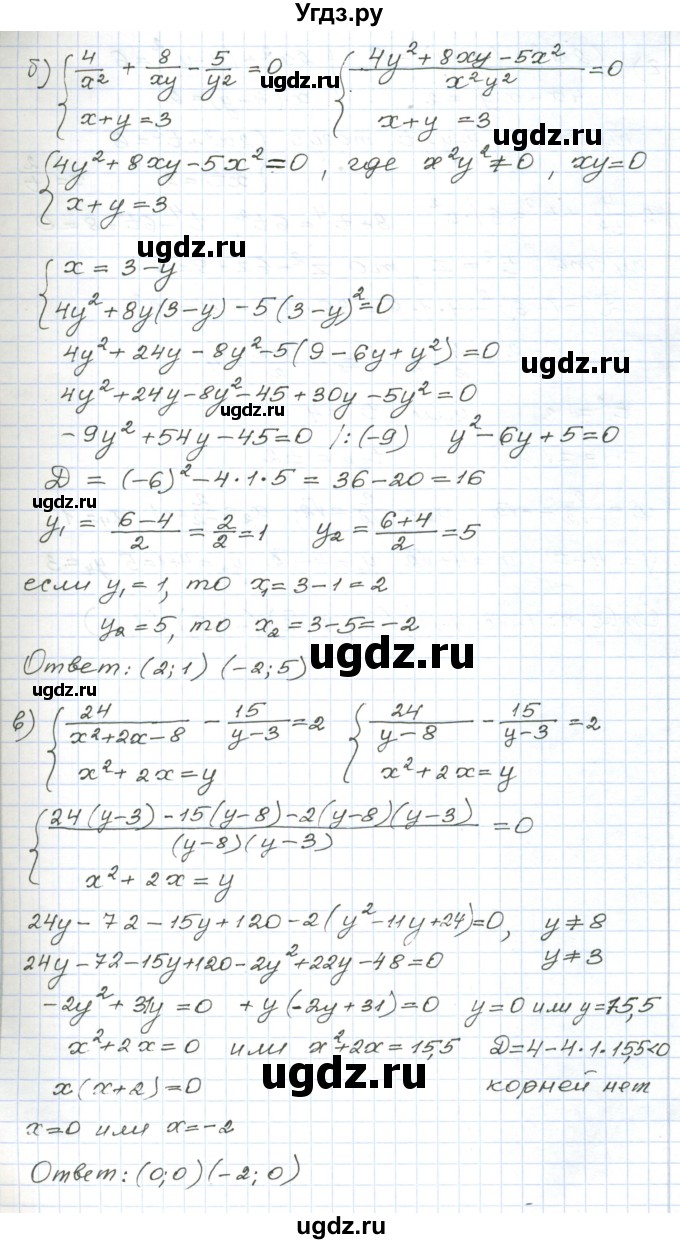 Угдз.ру
б) { 4/x² + 8/xy − 5/y² = 0   { (4y² + 8xy − 5x²)/(x²y²) = 0
ugdz.ru
x + y = 3   x + y = 3
ugdz.ru
{ 4y² + 8xy − 5x² = 0, где x²y² ≠ 0, xy = 0
x + y = 3
ugdz.ru
{ x = 3 − y
4y² + 8y(3 − y) − 5(3 − y)² = 0
4y² + 24y − 8y² − 5(9 − 6y + y²) = 0
ugdz.ru
4y² + 24y − 8y² − 45 + 30y − 5y² = 0
ugdz.ru
−9y² + 54y − 45 = 0 /:(−9)   y² − 6y + 5 = 0
D = (−6)² − 4·1·5 = 36 − 20 = 16
ugdz.ru
y₁ = (6−4)/2 = 2/2 = 1   y₂ = (6+4)/2 = 5
ugdz.ru
если y₁ = 1, то x₁ = 3 − 1 = 2
y₂ = 5, то x₂ = 3 − 5 = −2
ugdz.ru
Ответ: (2; 1) (−2; 5)
ugdz.ru
в) { 24/(x²+2x−8) − 15/(y−3) = 2   { 24/(y−8) − 15/(y−3) = 2
x² + 2x = y   x² + 2x = y
ugdz.ru
{ (24(y−3) − 15(y−8) − 2(y−8)(y−3))/((y−8)(y−3)) = 0
x² + 2x = y
ugdz.ru
24y − 72 − 15y + 120 − 2(y² − 11y + 24) = 0,   y ≠ 8
24y − 72 − 15y + 120 − 2y² + 22y − 48 = 0   y ≠ 3
−2y² + 31y = 0   + y(−2y + 31) = 0   y = 0 или y = 15,5
x² + 2x = 0 или x² + 2x = 15,5   D = 4 − 4·1·15,5 < 0
ugdz.ru
x(x + 2) = 0   корней нет
x = 0 или x = −2
ugdz.ru
Ответ: (0; 0) (−2; 0)
ugdz.ru